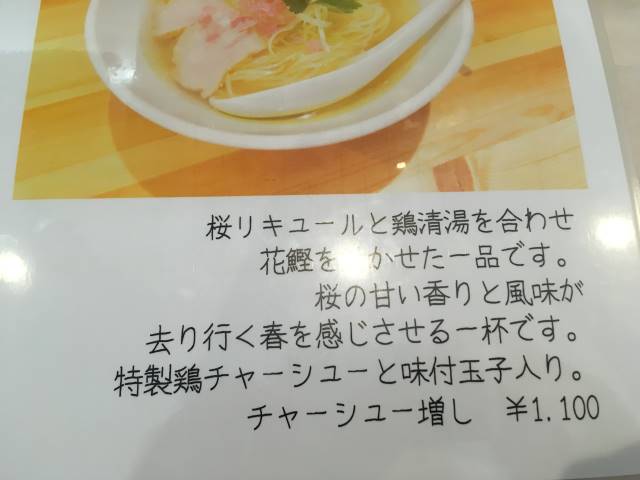 桜リキュールと鶏清湯を合わせ
花鰹を かせた一品です。
桜の甘い香りと風味が
去り行く春を感じさせる一杯です。
特製鶏チャーシューと味付玉子入り。
チャーシュー増し ￥1.100